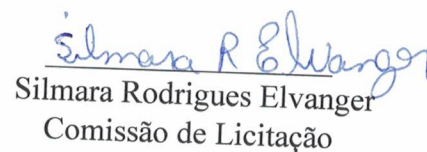 Silmara R Elvanger
Silmara Rodrigues Elvanger
Comissão de Licitação